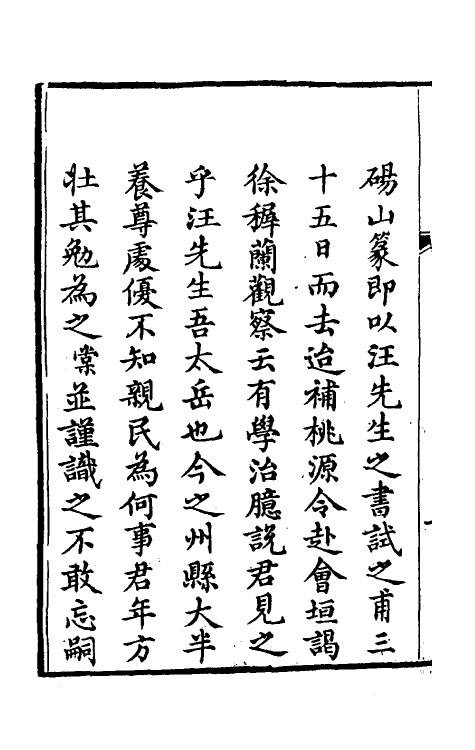 碭山篆即以汪先生之書試之甫三
十五日而去迨補桃源令赴會垣謁
徐稺蘭觀察云有學治臆說君見之
乎汪先生吾太岳也今之州縣大半
養尊處優不知親民為何事君年方
壯其勉為之棠並謹識之不敢忘嗣